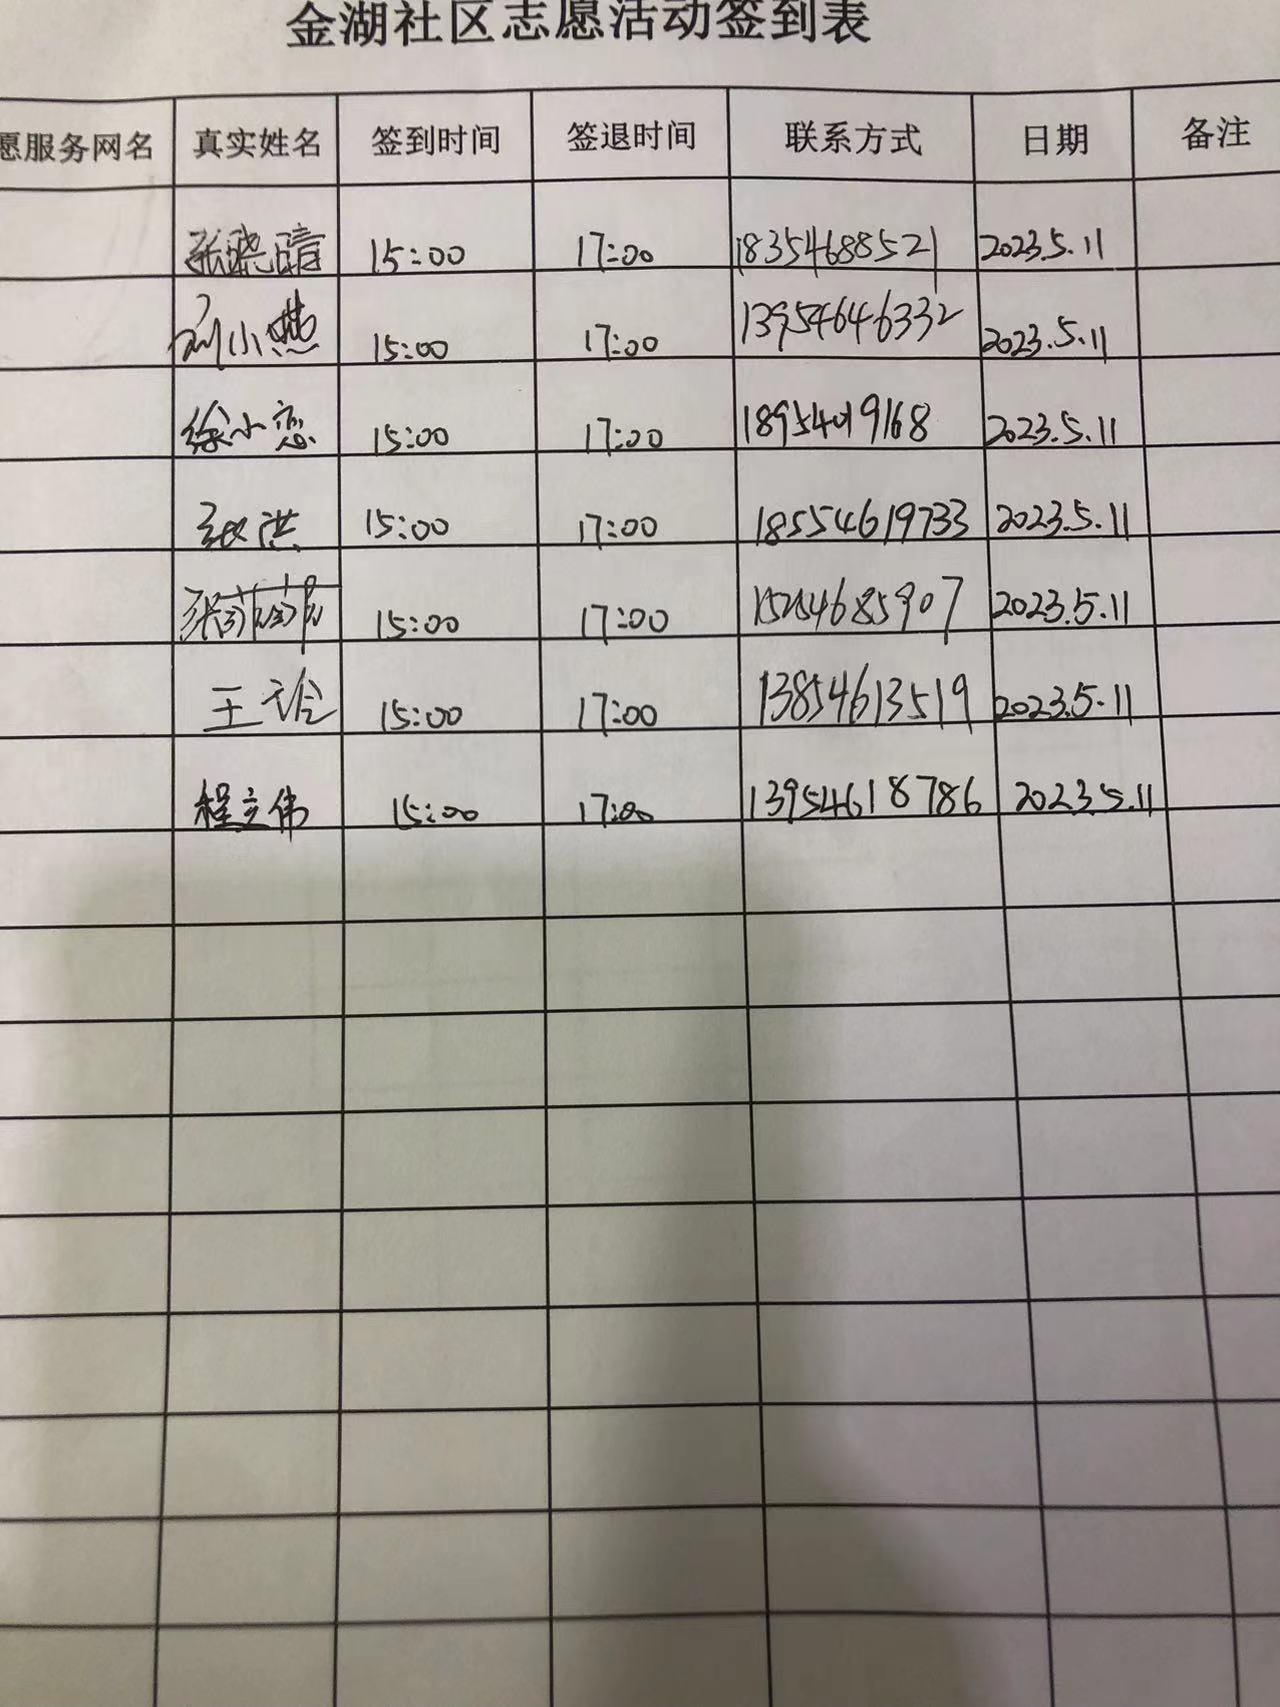 金湖社区志愿活动签到表
愿服务网名 真实姓名 签到时间 签退时间 联系方式 日期 备注
张晓晴 15:00 17:00 18354688521 2023.5.11
刘小燕 15:00 17:00 13954646332 2023.5.11
徐小恋 15:00 17:00 18954019168 2023.5.11
张洪 15:00 17:00 18554619733 2023.5.11
15:00 17:00 2023.5.11
王 15:00 17:00 13854613519 2023.5.11
程立伟 15:00 17:00 13954618786 2023.5.11